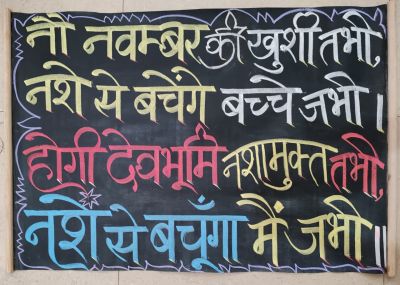 नौ नवम्बर की खुशी तभी,
नशे से बचेंगे बच्चे जभी।
होगी देवभूमि नशामुक्त तभी,
नशे से बचूँगा मैं जभी॥